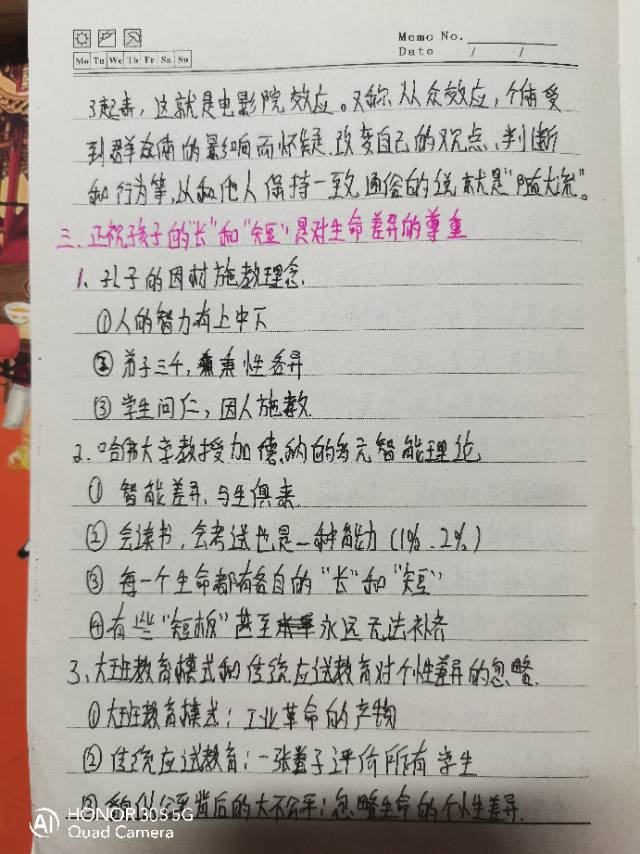 Memo No.
Mo Tu We Th Fr Sa Su
Date / /
了起来，这就是电影院效应。又称从众效应，个体受
到群体的影响而怀疑、改变自己的观点、判断
和行为等，以和他人保持一致。通俗的说就是"随大流"。
三、正视孩子的"长"和"短"是对生命差异的尊重
1、孔子的因材施教理念.
①人的智力有上中下
②弟子三千，秉性各异
③学生问仁，因人施教.
2.哈佛大学教授加德纳的多元智能理论
①智能差异，与生俱来.
②会读书，会考试也是一种能力（1%.2%）
③每一个生命都有各自的"长"和"短"
④有些"短板"甚至永远无法补齐
3、大班教育模式和传统应试教育对个性差异的忽略.
①大班教育模式：工业革命的产物
②传统应试教育：一张卷子评价所有学生
③貌似公平背后的大不公平：忽略生命的个性差异.
AI HONOR 30S 5G
Quad Camera